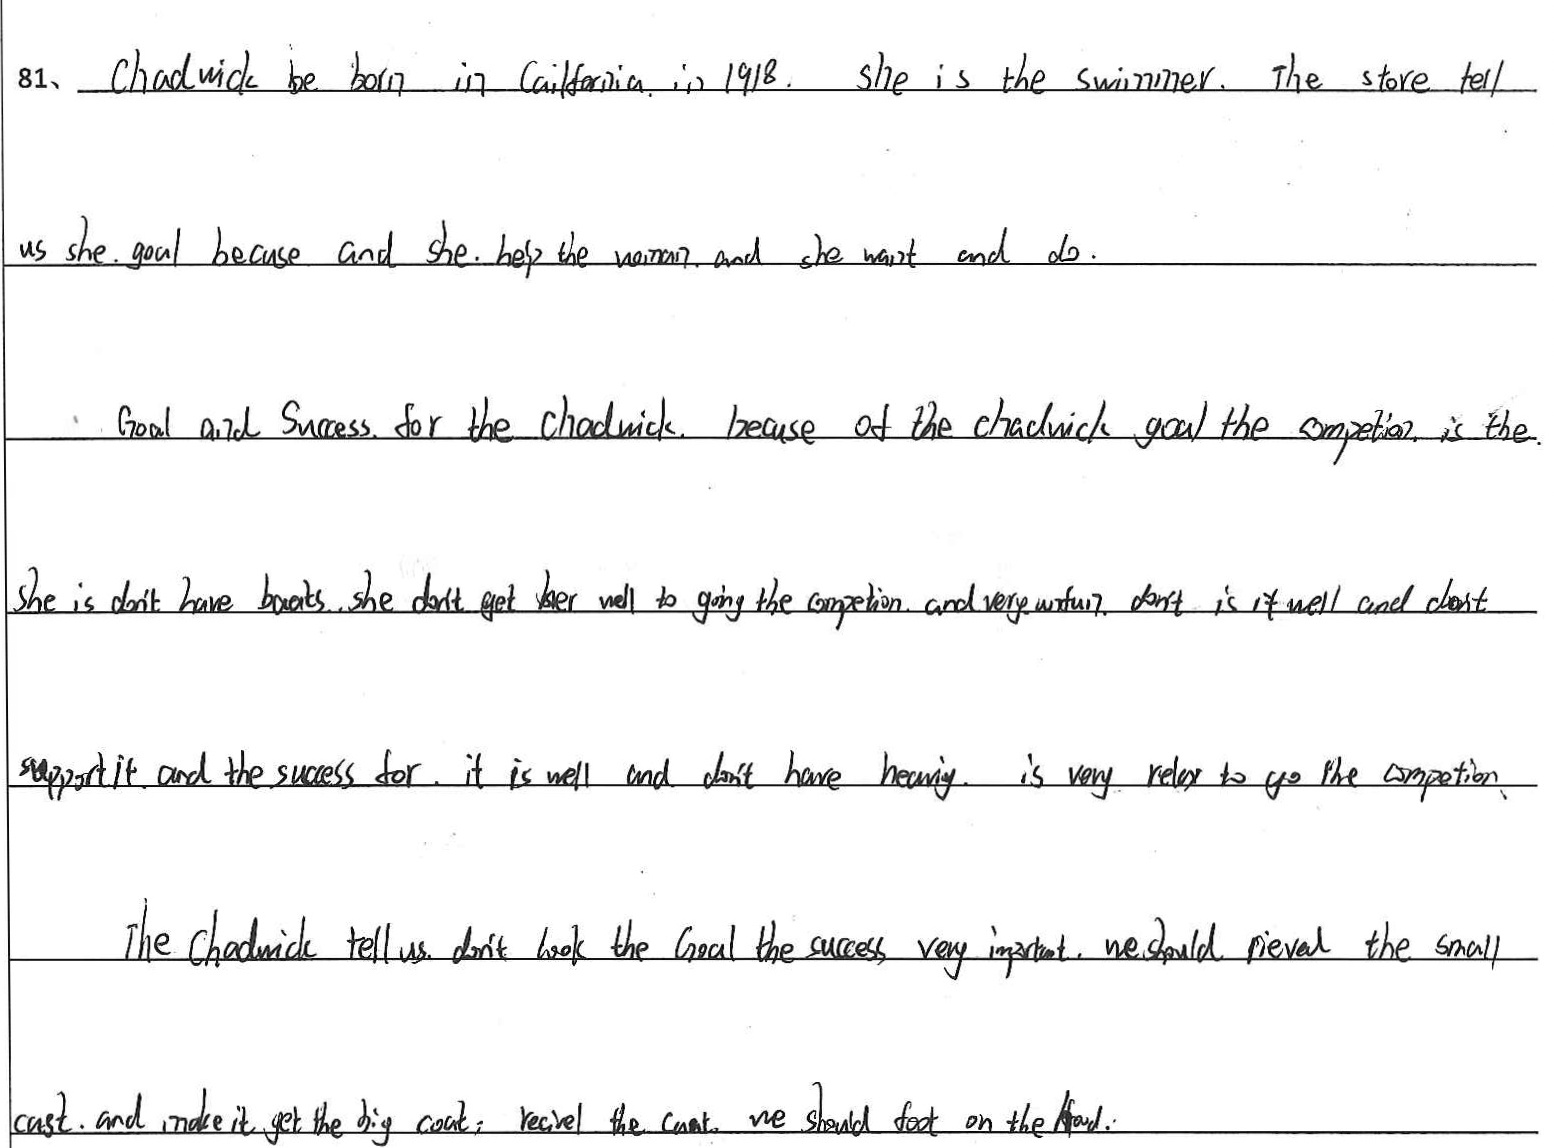 81、 Chadwick be born in Cailfornia in 1918. She is the swimmer. The store tell
us she. goal becuse and she. help the woman. and she want and do.
Goal and Success. for the Chadwick. becuse of the chadwick goal the competion. is the.
she is don't have boats. she don't get her well to going the competion. and very don't is it well and don't
support it. and the success for. it is well and don't have heaviy. is very relex to go the competion.
The Chadwick tell us. don't look the Goal the success very important. we should the small
cast. and make it get the big coat; the we should foot on the